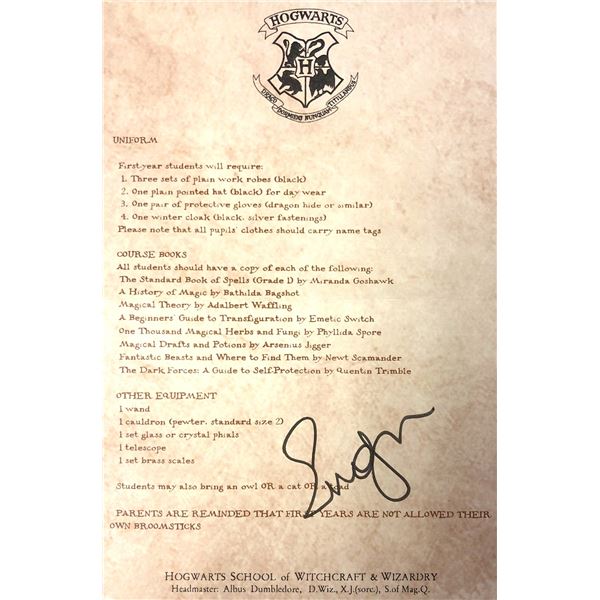 HOGWARTS
DRACO DORMIENS NUNQUAM TITILLANDUS
UNIFORM
First-year students will require:
1. Three sets of plain work robes (black)
2. One plain pointed hat (black) for day wear
3. One pair of protective gloves (dragon hide or similar)
4. One winter cloak (black, silver fastenings)
Please note that all pupils' clothes should carry name tags
COURSE BOOKS
All students should have a copy of each of the following:
The Standard Book of Spells (Grade 1) by Miranda Goshawk
A History of Magic by Bathilda Bagshot
Magical Theory by Adalbert Waffling
A Beginners' Guide to Transfiguration by Emetic Switch
One Thousand Magical Herbs and Fungi by Phyllida Spore
Magical Drafts and Potions by Arsenius Jigger
Fantastic Beasts and Where to Find Them by Newt Scamander
The Dark Forces: A Guide to Self-Protection by Quentin Trimble
OTHER EQUIPMENT
1 wand
1 cauldron (pewter, standard size 2)
1 set glass or crystal phials
1 telescope
1 set brass scales
Students may also bring an owl OR a cat OR a toad
PARENTS ARE REMINDED THAT FIRST YEARS ARE NOT ALLOWED THEIR
OWN BROOMSTICKS
HOGWARTS SCHOOL of WITCHCRAFT & WIZARDRY
Headmaster: Albus Dumbledore, D.Wiz., X.J.(sorc.), S.of Mag.Q.